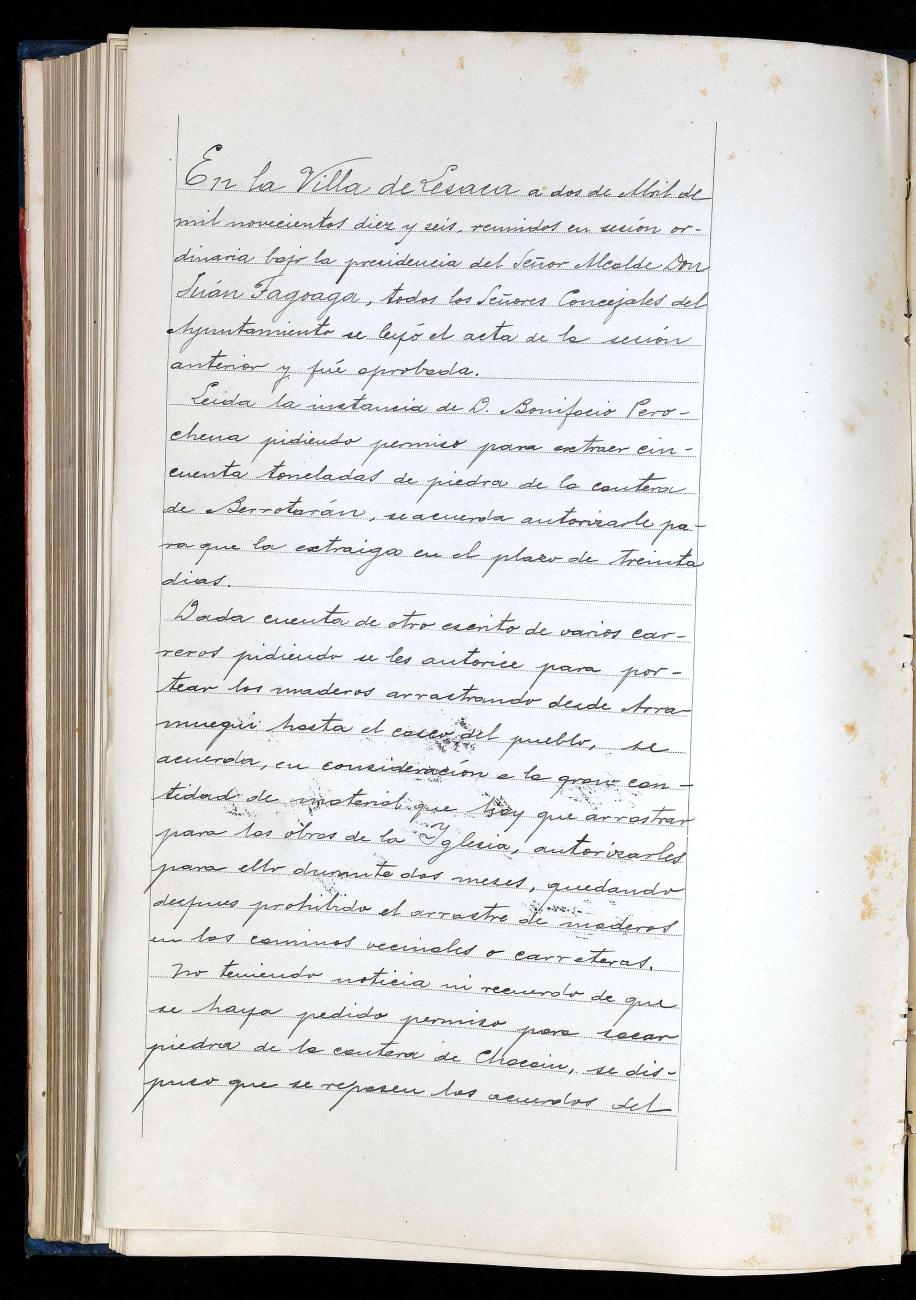 En la Villa de Lesaca a dos de Abril de
mil novecientos diez y seis, reunidos en sesión or-
dinaria bajo la presidencia del Señor Alcalde Don
Juán Fagoaga, todos los Señores Concejales del
Ayuntamiento se leyó el acta de la sesión
anterior y fué aprobada.
Leida la instancia de D. Bonifacio Pero-
chena pidiendo permiso para extraer cin-
cuenta toneladas de piedra de la cantera
de Berrotarán, se acuerda autorizarle pa-
ra que la extraiga en el plazo de treinta
dias.
Dada cuenta de otro escrito de varios car-
reros pidiendo se les autorice para por-
tear los maderos arrastrando desde Arra-
muegui hasta el casco del pueblo, se
acuerda, en consideración a la gran can-
tidad de material que hay que arrastrar
para las obras de la Yglesia, autorizarles
para ello durante dos meses, quedando
despues prohibido el arrastre de maderos
en los caminos vecinales o carreteras.
No teniendo noticia ni recuerdo de que
se haya pedido permiso para sacar
piedra de la cantera de Chocoin, se dis-
puso que se repasen los acuerdos del